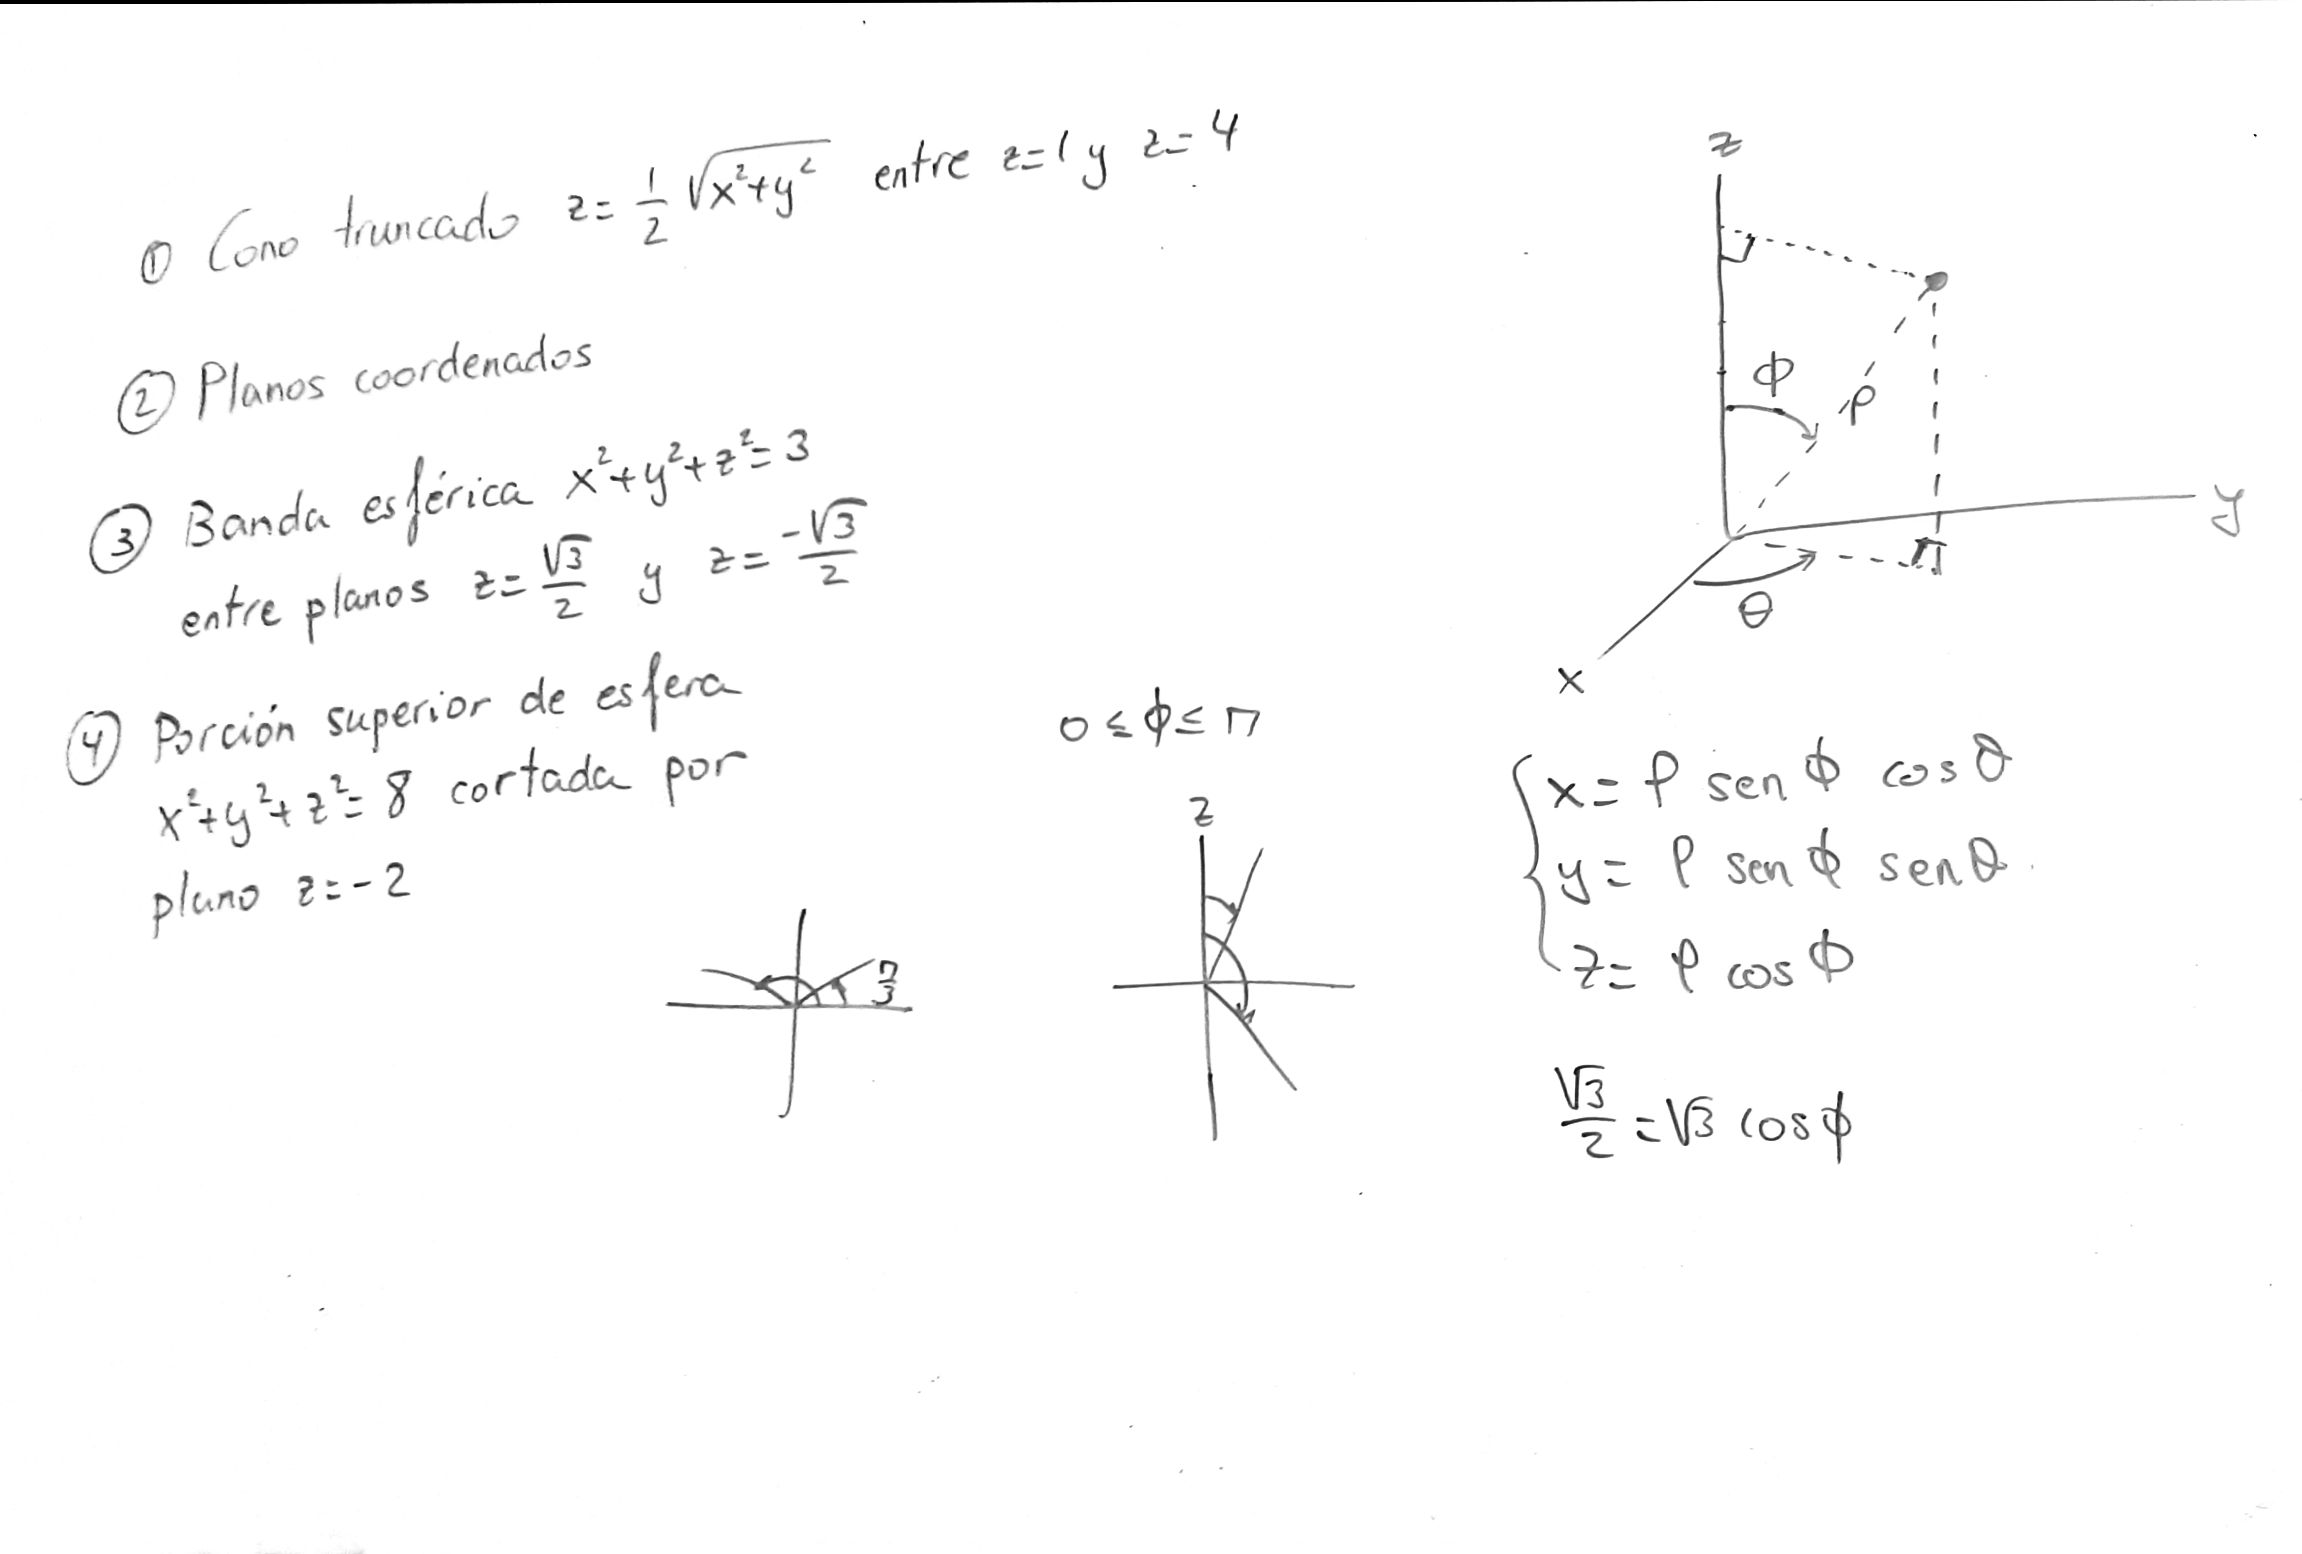 ① Cono truncado z = 1/2 √(x²+y²) entre z=1 y z=4
② Planos coordenados
③ Banda esférica x²+y²+z²=3
entre planos z= √3/2 y z= -√3/2
④ Porción superior de esfera
x²+y²+z²=8 cortada por
plano z=-2
π/3
0 ≤ ϕ ≤ π
z
z
ϕ
ρ
y
θ
x
x= ρ sen ϕ cos θ
y= ρ sen ϕ sen θ
z= ρ cos ϕ
√3/2 = √3 cos ϕ